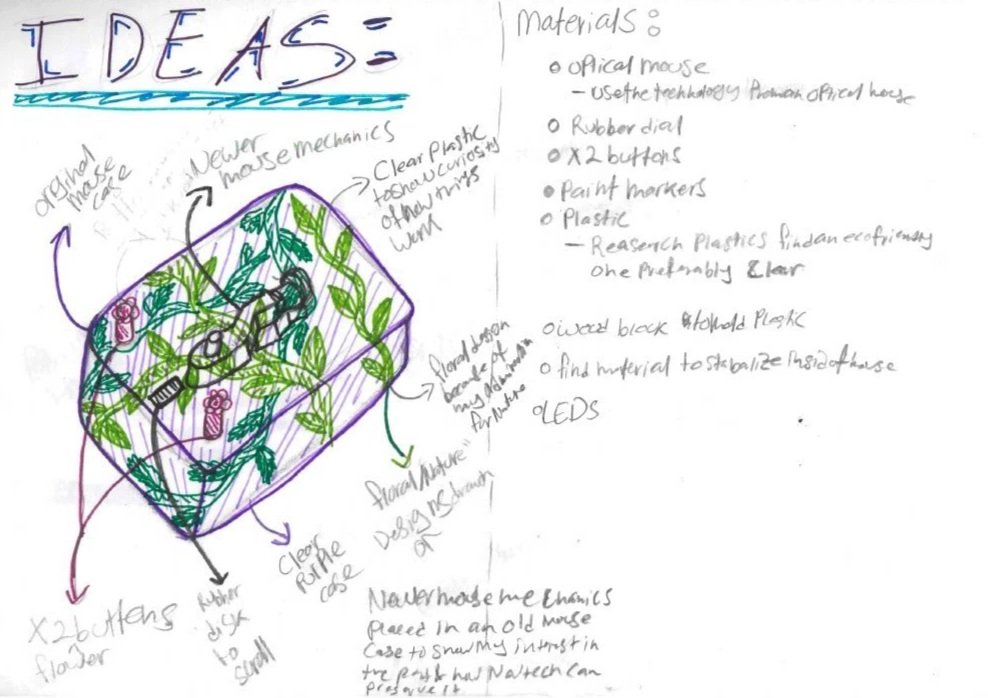 IDEAS:
Original
mouse
case
Newer
mouse mechanics
Clear Plastic
to show curiosity
of how things
work
floral design
because of
my
for Nature
floral/"Nature"
Designs drawn
on
Clear
Purple
case
Rubber
disk
to
scroll
X2 buttons
flower
Newer mouse mechanics
placed in an old mouse
case to show my interest in
the past & how New tech can
preserve it
Materials:
o optical mouse
- use the technology from an optical mouse
o Rubber dial
o X2 buttons
o Paint markers
o Plastic
- Reaserch Plastics find an ecofriendly
one preferably clear
o wood block to hold plastic
o find material to stabalize inside of mouse
o LEDS